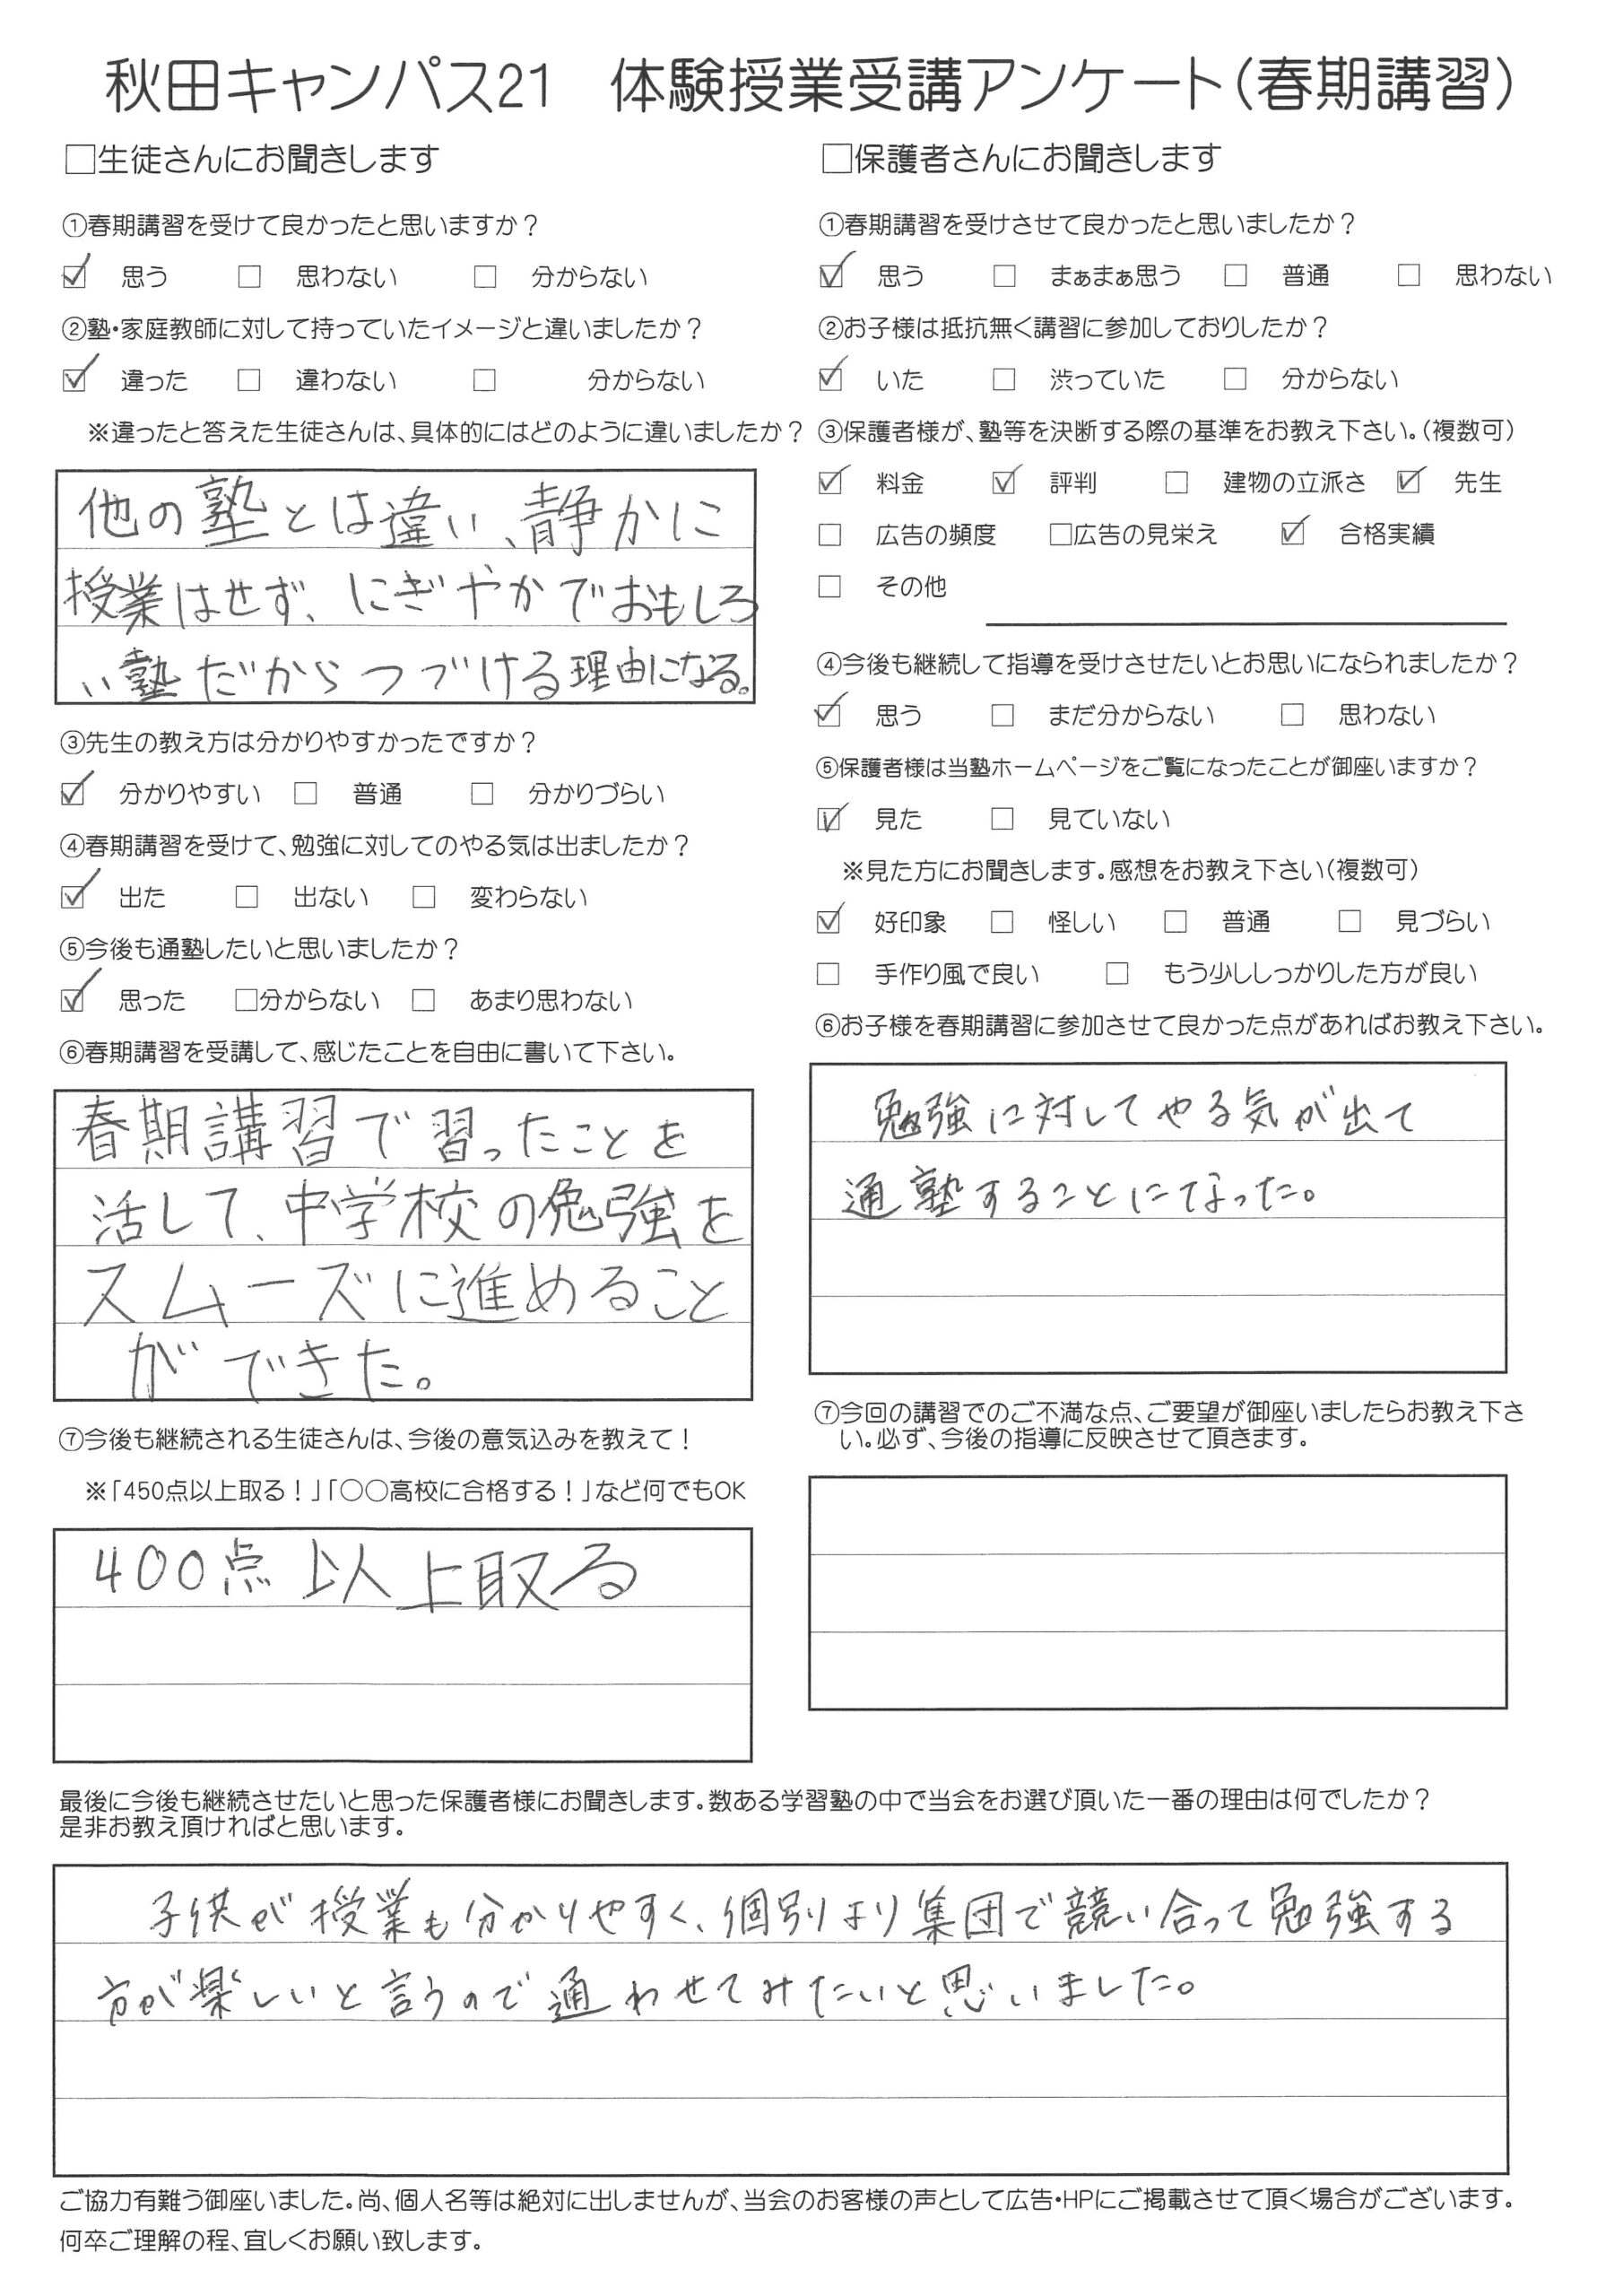 秋田キャンパス21　体験授業受講アンケート(春期講習)
□生徒さんにお聞きします
①春期講習を受けて良かったと思いますか?
☑ 思う □ 思わない □ 分からない
②塾・家庭教師に対して持っていたイメージと違いましたか?
☑ 違った □ 違わない □ 分からない
※違ったと答えた生徒さんは、具体的にはどのように違いましたか?
他の塾とは違い、静かに
授業はせず、にぎやかでおもしろ
い塾だからつづける理由になる。
③先生の教え方は分かりやすかったですか?
☑ 分かりやすい □ 普通 □ 分かりづらい
④春期講習を受けて、勉強に対してのやる気は出ましたか?
☑ 出た □ 出ない □ 変わらない
⑤今後も通塾したいと思いましたか?
☑ 思った □分からない □ あまり思わない
⑥春期講習を受講して、感じたことを自由に書いて下さい。
春期講習で習ったことを
活して、中学校の勉強を
スムーズに進めること
ができた。
⑦今後も継続される生徒さんは、今後の意気込みを教えて!
※「450点以上取る!」「○○高校に合格する!」など何でもOK
400点以上取る
□保護者さんにお聞きします
①春期講習を受けさせて良かったと思いましたか?
☑ 思う □ まぁまぁ思う □ 普通 □ 思わない
②お子様は抵抗無く講習に参加しておりしたか?
☑ いた □ 渋っていた □ 分からない
③保護者様が、塾等を決断する際の基準をお教え下さい。(複数可)
☑ 料金 ☑ 評判 □ 建物の立派さ ☑ 先生
□ 広告の頻度 □広告の見栄え ☑ 合格実績
□ その他
④今後も継続して指導を受けさせたいとお思いになられましたか?
☑ 思う □ まだ分からない □ 思わない
⑤保護者様は当塾ホームページをご覧になったことが御座いますか?
☑ 見た □ 見ていない
※見た方にお聞きします。感想をお教え下さい(複数可)
☑ 好印象 □ 怪しい □ 普通 □ 見づらい
□ 手作り風で良い □ もう少ししっかりした方が良い
⑥お子様を春期講習に参加させて良かった点があればお教え下さい。
勉強に対してやる気が出て
通塾することになった。
⑦今回の講習でのご不満な点、ご要望が御座いましたらお教え下さ
い。必ず、今後の指導に反映させて頂きます。
最後に今後も継続させたいと思った保護者様にお聞きします。数ある学習塾の中で当会をお選び頂いた一番の理由は何でしたか?
是非お教え頂ければと思います。
子供が授業も分かりやすく、個別より集団で競い合って勉強する
方が楽しいと言うので通わせてみたいと思いました。
ご協力有難う御座いました。尚、個人名等は絶対に出しませんが、当会のお客様の声として広告・HPにご掲載させて頂く場合がございます。
何卒ご理解の程、宜しくお願い致します。